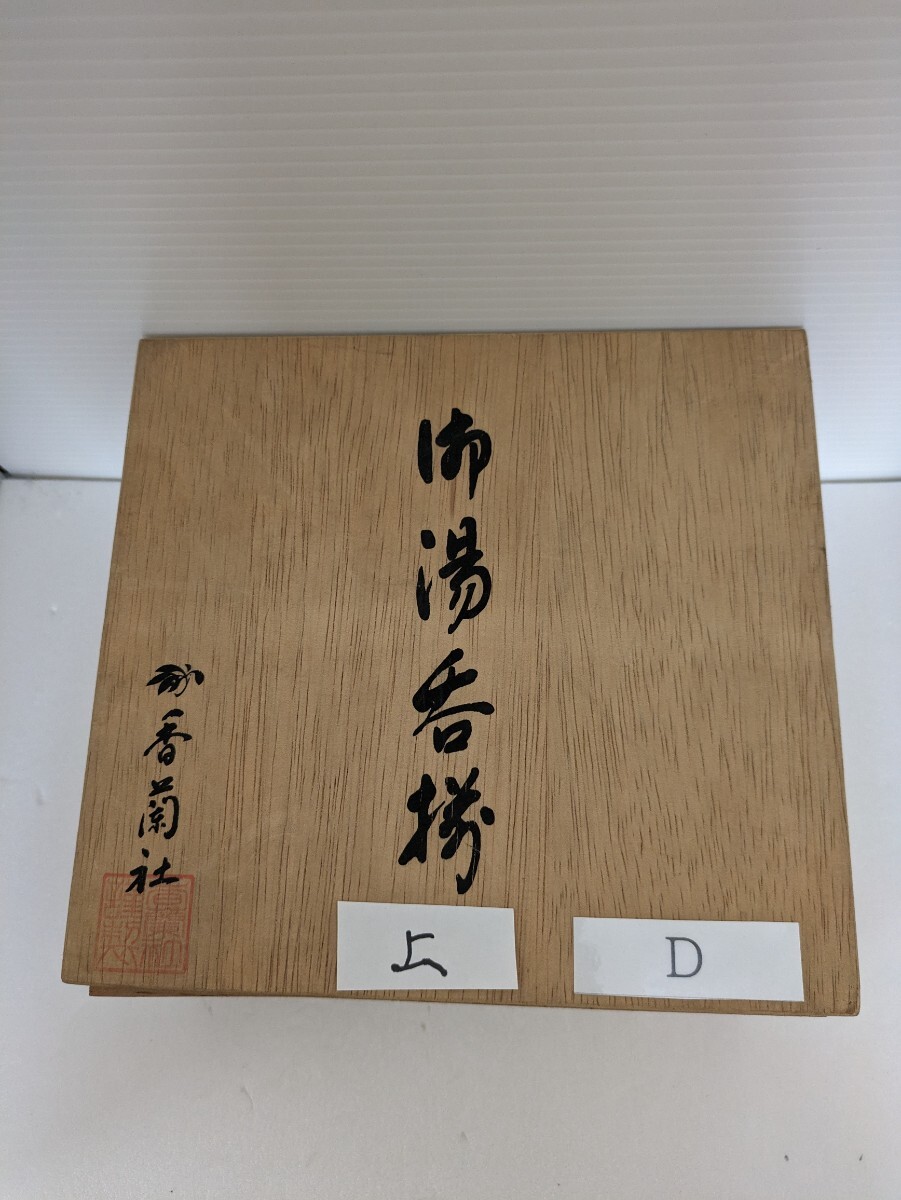 御湯呑揃
香蘭社
上
D